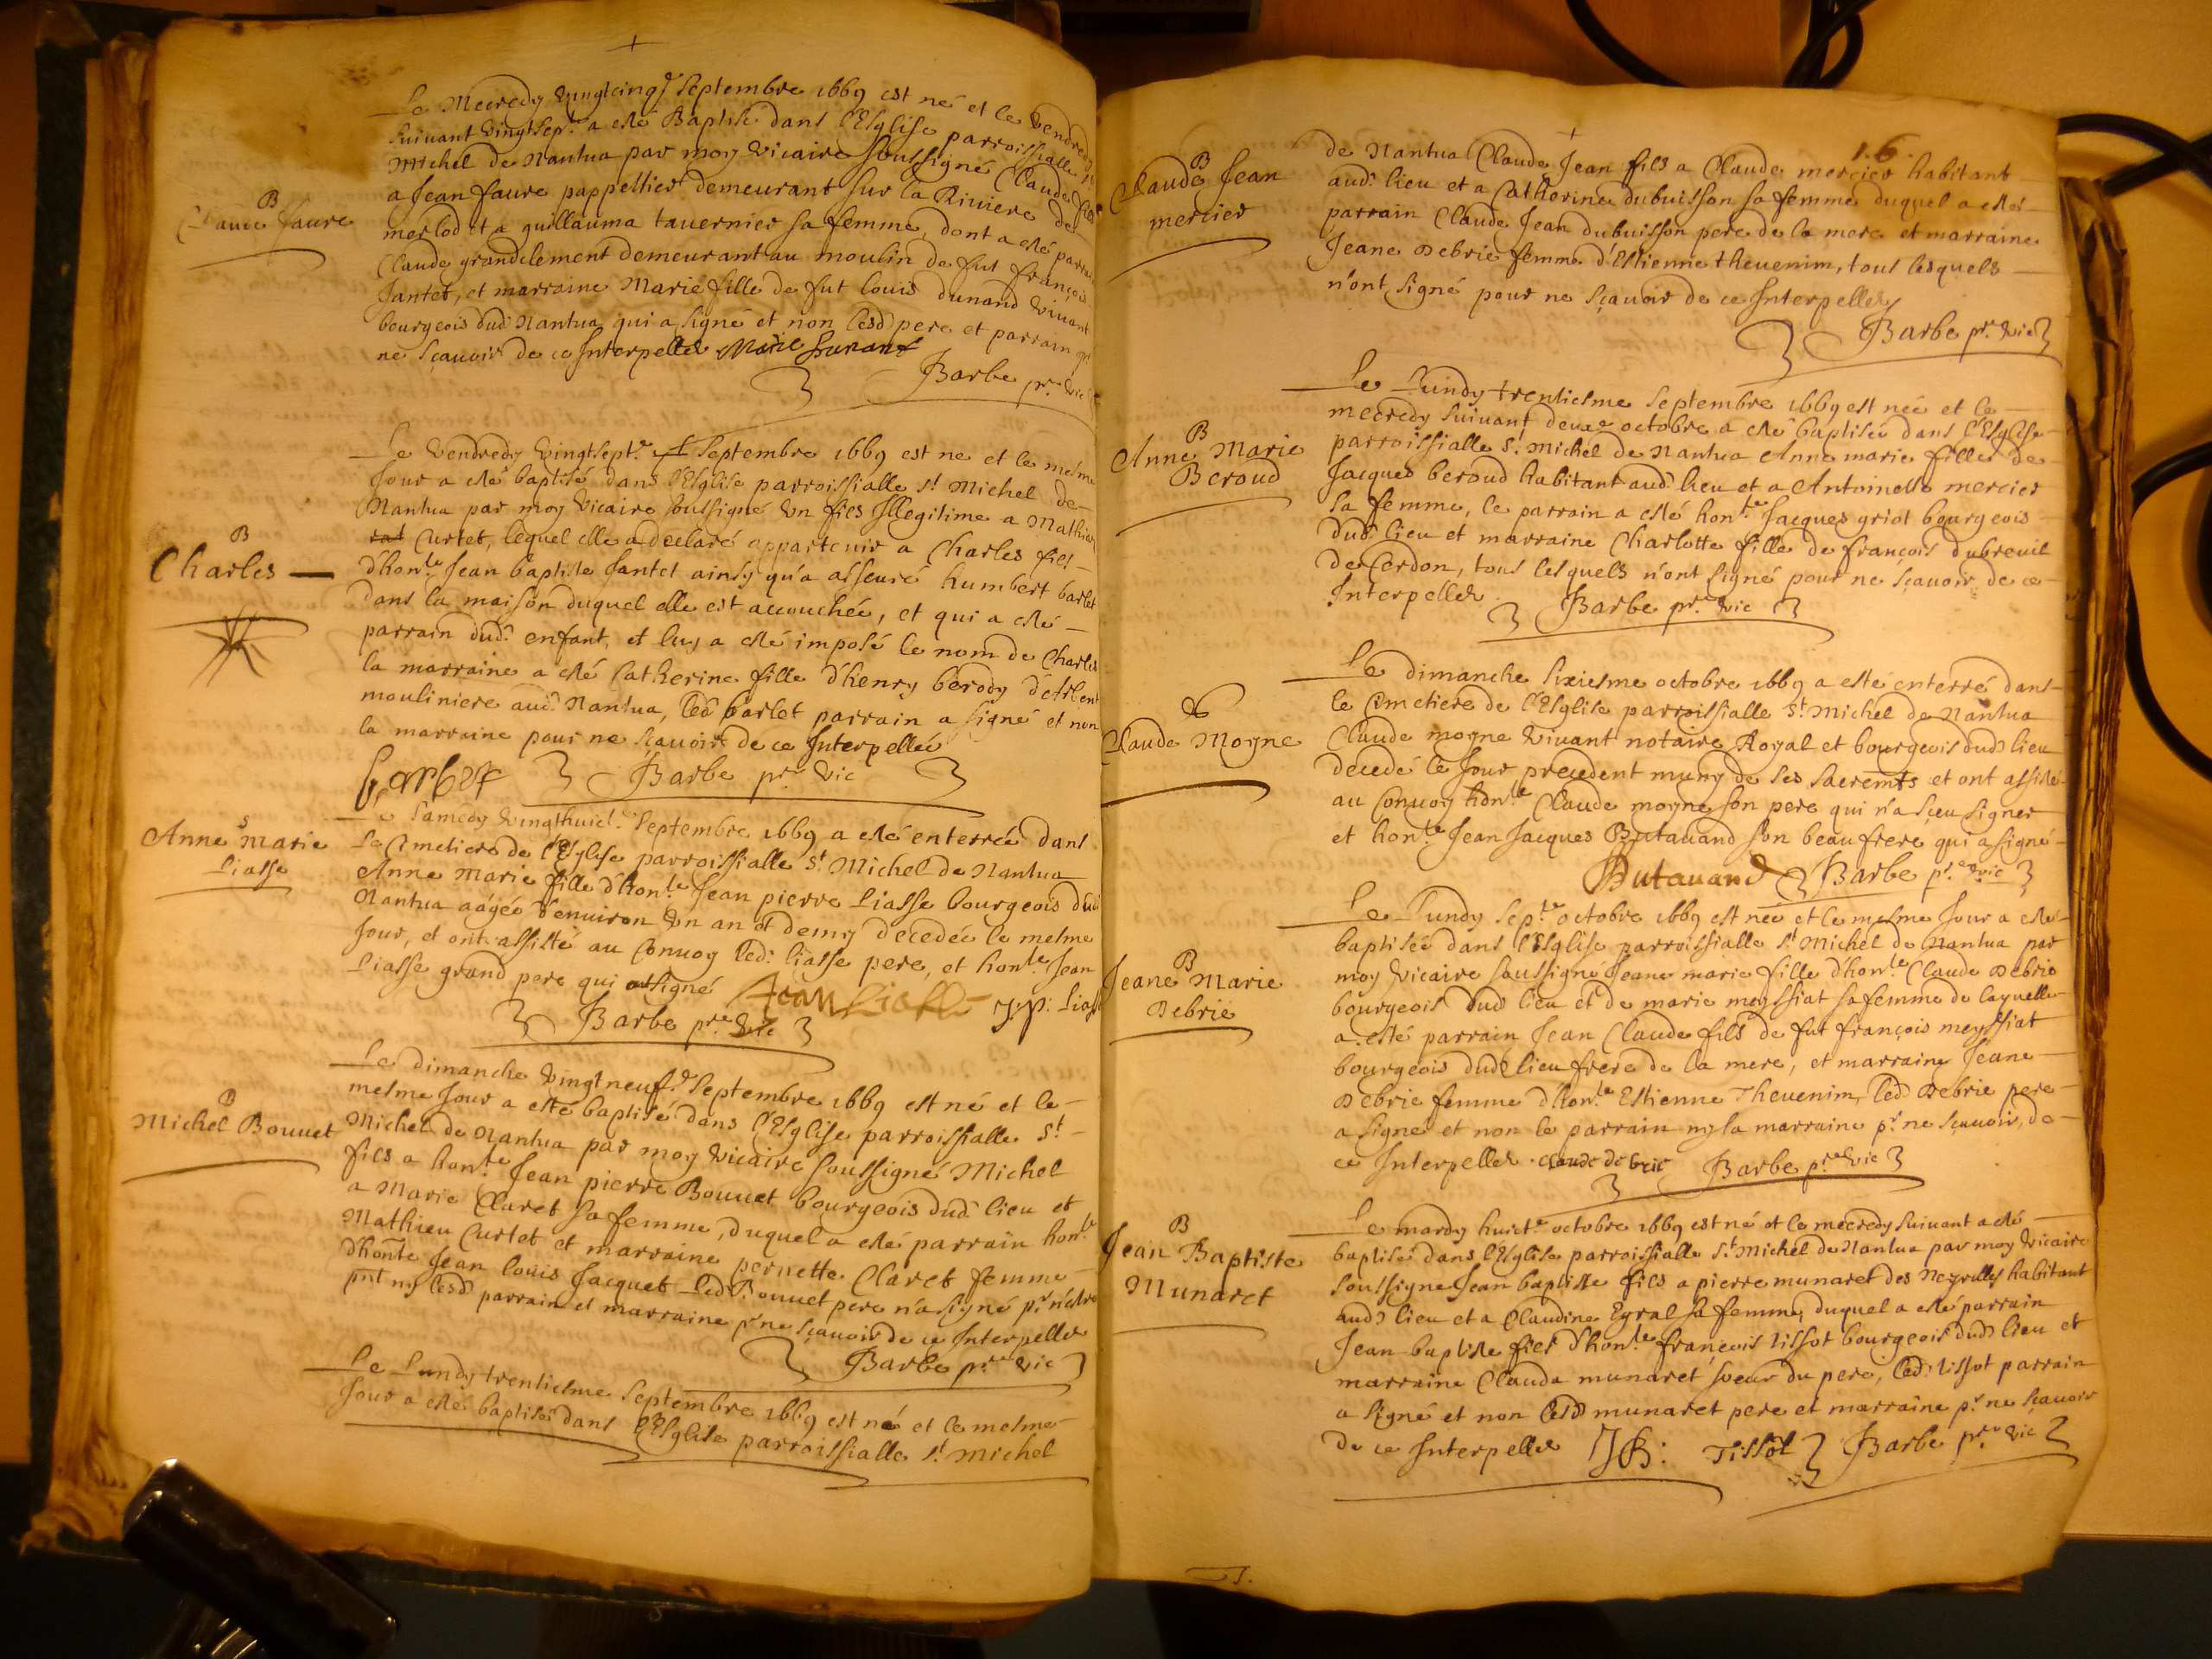 Le Mecredy vingtcinq.e Septembre 1669 est né et le vendredy
suivant vingtsept.e a esté Baptisé dans l'Esglise parroissialle S.t
Michel de Nantua par moy vicaire soussigné Claude fils
a Jean faure pappettier demeurant sur la Riviere de
merlod et a guillauma tavernier sa femme, dont a esté parrain
Claude grandclement demeurant au moulin de fut françois
Jantet, et marraine Marie fille de fut louis dunand vivant
bourgeois dud. Nantua qui a signé et non lesd. pere et parrain pr
ne sçavoir de ce Interpellés Marie Dunant
Barbe pr.e vic
B
Claude faure
Le vendredy vingtsept.e Septembre 1669 est ne et le mesme
Jour a esté baptisé dans l'Esglise parroissialle S.t Michel de
Nantua par moy vicaire soussigné un fils Illegitime a Mathieu
Curtet, lequel elle a declaré appartenir a Charles fils
d'hon.le Jean baptiste Jantet ainsy qu'a asseuré humbert barlet
dans la maison duquel elle est accouchée, et qui a esté
parrain dud. enfant, et luy a esté imposé le nom de Charles
la marraine a esté Catherine fille d'henry berody d'Arbent
mouliniere aud. Nantua, led. barlet parrain a signé et non
la marraine pour ne sçavoir de ce Interpellée
Barbe pr.e vic
B
Charles
Le Samedy vingthuict.e Septembre 1669 a esté enterrée dans
le Cimetiere de l'Esglise parroissialle S.t Michel de Nantua
Anne Marie fille d'hon.le Jean pierre Liasse bourgeois dud.
Nantua aagée d'environ un an et demy decedée le mesme
Jour, et ont assisté au Convoy led. liasse pere, et hon.le Jean
Liasse grand pere qui ont signé Jean Liasse J. p. Liasse
Barbe pr.e vic
S
Anne Marie
Liasse
Le dimanche vingtneuf.e Septembre 1669 est né et le
mesme Jour a esté baptisé dans l'Esglise parroissialle S.t
Michel de Nantua par moy vicaire soussigné Michel
fils a hon.le Jean pierre Bouvet bourgeois dud. lieu et
a Marie Claret sa femme, duquel a esté parrain hon.le
Mathieu Curtet et marraine pernette Claret femme
d'honte Jean louis Jacquet led. Bouvet pere n'a signé pr. n'estre
pnt ny lesd. parrain et marraine pr ne sçavoir de ce Interpellés
Barbe pr.e vic
B
Michel Bouvet
Le Lundy trentiesme Septembre 1669 est né et le mesme
Jour a esté baptisé dans l'Esglise parroissialle S.t Michel
16.
de Nantua Claude Jean fils a Claude mercier habitant
aud. lieu et a Catherine dubuisson sa femme duquel a esté
parrain Claude Jean dubuisson pere de la mere et marraine
Jeane Debrie femme d'Estienne thevenim, tous lesquels
n'ont signé pour ne sçavoir de ce Interpellés
Barbe pr.e vic
B
Claude Jean
mercier
Le Lundy trentiesme Septembre 1669 est née et le
mecredy suivant deux.e octobre a esté baptisée dans l'Esglise
parroissialle S.t Michel de Nantua Anne marie fille de
Jacques beroud habitant aud. lieu et a Antoinette mercier
sa femme, le parrain a esté hon.le Jacques griot bourgeois
dud. lieu et marraine Charlotte fille de françois dubreuil
de Cerdon, tous lesquels n'ont signé pour ne sçavoir de ce
Interpellés
Barbe pr.e vic
B
Anne Marie
Beroud
Le dimanche sixiesme octobre 1669 a esté enterré dans
le Cimetiere de l'Esglise parroissialle S.t Michel de Nantua
Claude moyne vivant notaire Royal et bourgeois dud. lieu
decedé le Jour precedent muny de ses sacremts et ont assisté
au Convoy hon.le Claude moyne son pere qui n'a sceu signer
et hon.le Jean Jacques Butavand son beau frere qui a signé
Butavand Barbe pr.e vic
Claude Moyne
Le Lundy sept.e octobre 1669 est née et le mesme Jour a esté
baptisée dans l'Esglise parroissialle S.t Michel de Nantua par
moy vicaire soussigné Jeane marie fille d'hon.le Claude Debrie
bourgeois dud. lieu et de marie meyssiat sa femme de laquelle
a esté parrain Jean Claude fils de fut françois meyssiat
bourgeois dud. lieu frere de la mere, et marraine Jeane
Debrie femme d'hon.le Estienne Thevenim, led. Debrie pere
a signé et non le parrain ny la marraine pr. ne sçavoir de
ce Interpellés Claude Debrie Barbe pr.e vic
B
Jeane Marie
Debrie
Le mardy huict.e octobre 1669 est né et le mecredy suivant a esté
baptisé dans l'Esglise parroissialle S.t Michel de Nantua par moy vicaire
soussigné Jean baptiste fils a pierre munaret des Neyrolles habitant
aud. lieu et a Claudine Eyral sa femme, duquel a esté parrain
Jean baptiste fils d'hon.le françois tissot bourgeois dud. lieu et
marraine Clauda munaret soeur du pere, led. tissot parrain
a signé et non lesd. munaret pere et marraine pr. ne sçavoir
de ce Interpellés JB: Tissot Barbe pr.e vic
B
Jean Baptiste
Munaret